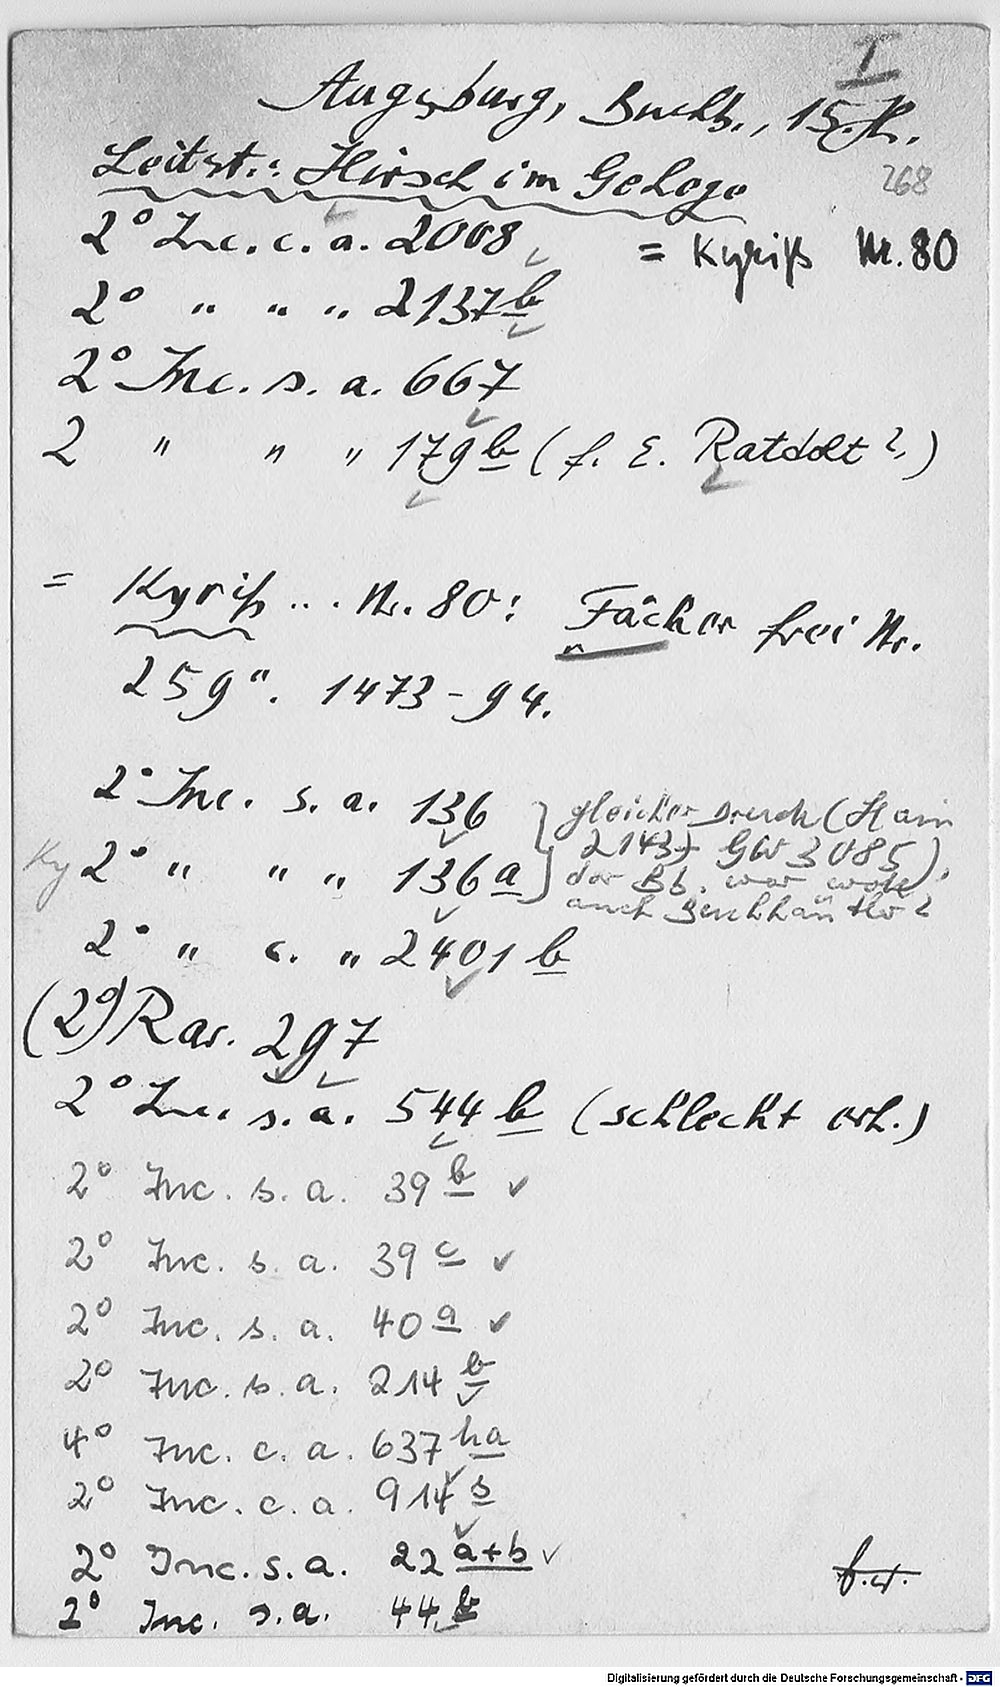 I
Augsburg, Buchb., 15. Jh.
Leitst.: Hirsch im Gehege
268
2° Inc. c. a. 2008
= Kyriß Nr. 80
2° " " " 2137 b
2° Inc. s. a. 667
2 " " " 179 b (f. E. Ratdolt?)
= Kyriß ... Nr. 80: Fächer frei Nr.
259". 1473-94.
2° Inc. s. a. 136 } gleicher Druck (Hain
2143 = GW 3085),
Ky 2° " " " 136 a } der Bb. war wohl
auch Buchhändler?
2° " c. " 2401 b
(2°) Rar. 297
2° Inc. s. a. 544 b (schlecht erh.)
2° Inc. s. a. 39 b ✓
2° Inc. s. a. 39 c ✓
2° Inc. s. a. 40 a ✓
2° Inc. s. a. 214 b
4° Inc. c. a. 637 ha
2° Inc. c. a. 914 s
2° Inc. s. a. 22 a+b ✓
2° Inc. s. a. 44 b
Digitalisierung gefördert durch die Deutsche Forschungsgemeinschaft - DFG